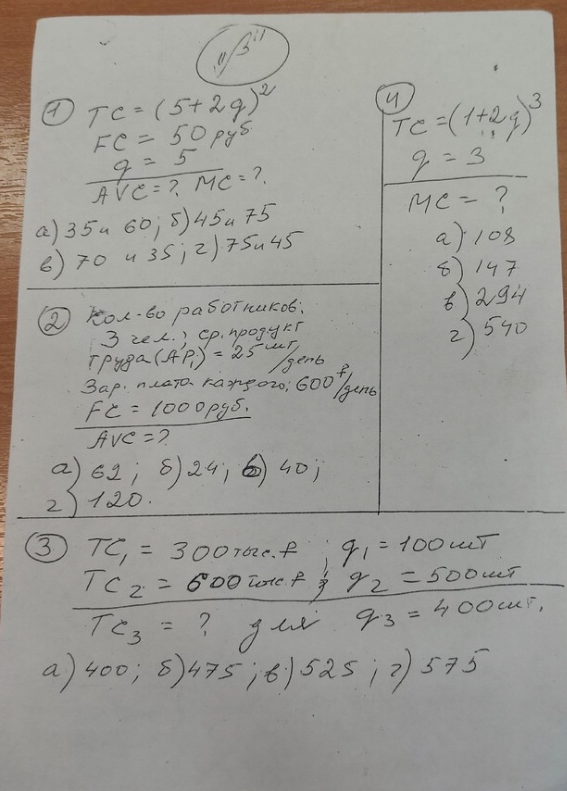 "В"
① TC = (5+2q)²
FC = 50 руб
q = 5
AVC = ? MC = ?
а) 35 и 60; б) 45 и 75
в) 70 и 35; г) 75 и 45
② Кол-во работников:
3 чел.; ср. продукт
труда (AP₁) = 25 шт/день
Зар. плата каждого: 600 ₽/день
FC = 1000 руб.
AVC = ?
а) 62; б) 24; в) 40;
г) 120.
③ TC₁ = 300 тыс. ₽; q₁ = 100 шт
TC₂ = 600 тыс. ₽; q₂ = 500 шт
TC₃ = ? для q₃ = 400 шт.
а) 400; б) 475; в) 525; г) 575
④
TC = (1+2q)³
q = 3
MC = ?
а) 108
б) 147
в) 294
г) 540